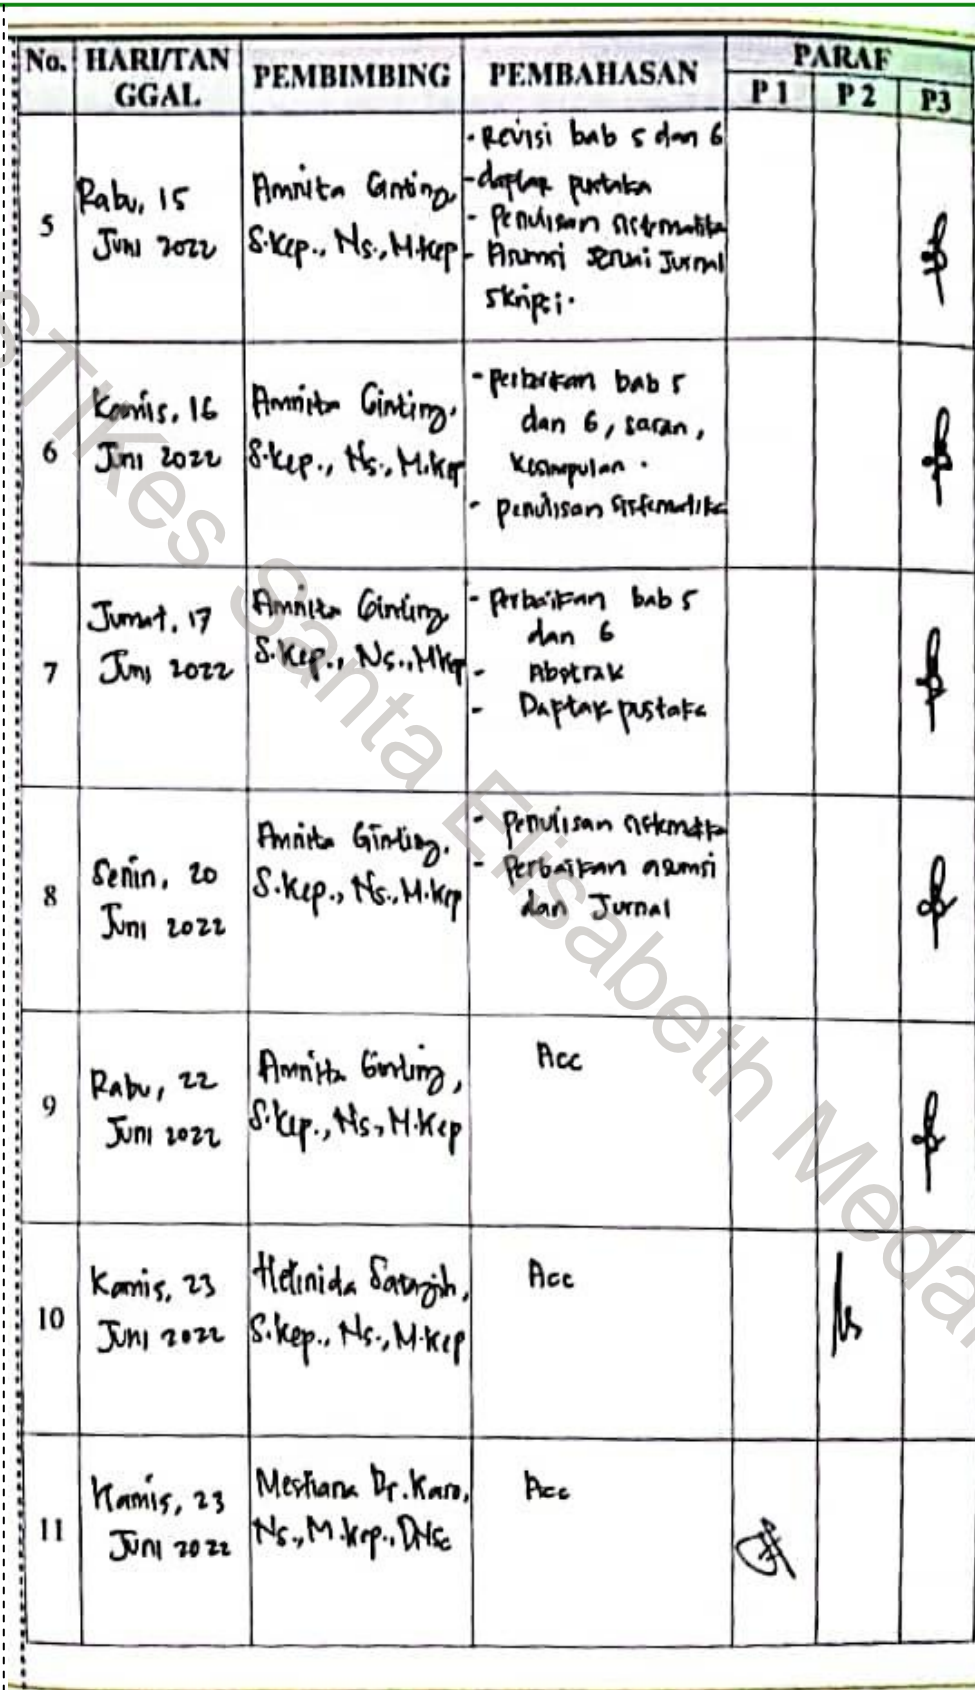 No. HARI/TAN GGAL PEMBIMBING PEMBAHASAN PARAF
P 1 P 2 P3
5
Rabu, 15
Juni 2022
Amnita Ginting,
S.Kep., Ns., M.Kep
- Revisi bab 5 dan 6
- daftar pustaka
- Penulisan sistematika
- Asumsi sesuai Jurnal
skripsi.
6
Kamis, 16
Juni 2022
Amnita Ginting,
S.Kep., Ns., M.Kep
- perbaikan bab 5
dan 6, saran,
kesimpulan.
- penulisan sistematika
7
Jumat, 17
Juni 2022
Amnita Ginting
S.Kep., Ns., MKep
- Perbaikan bab 5
dan 6
- Abstrak
- Daftar pustaka
8
Senin, 20
Juni 2022
Amnita Ginting.
S.Kep., Ns., M.Kep
- Penulisan sistematika
- Perbaikan asumsi
dan Jurnal
9
Rabu, 22
Juni 2022
Amnita Ginting,
S.Kep., Ns., M.Kep
Acc
10
Kamis, 23
Juni 2022
Helinida Saragih,
S.Kep., Ns., M.Kep
Acc
11
Kamis, 23
Juni 2022
Mestiana Br. Karo,
Ns., M.Kep., DNSc
Acc
STIKes Santa Elisabeth Medan